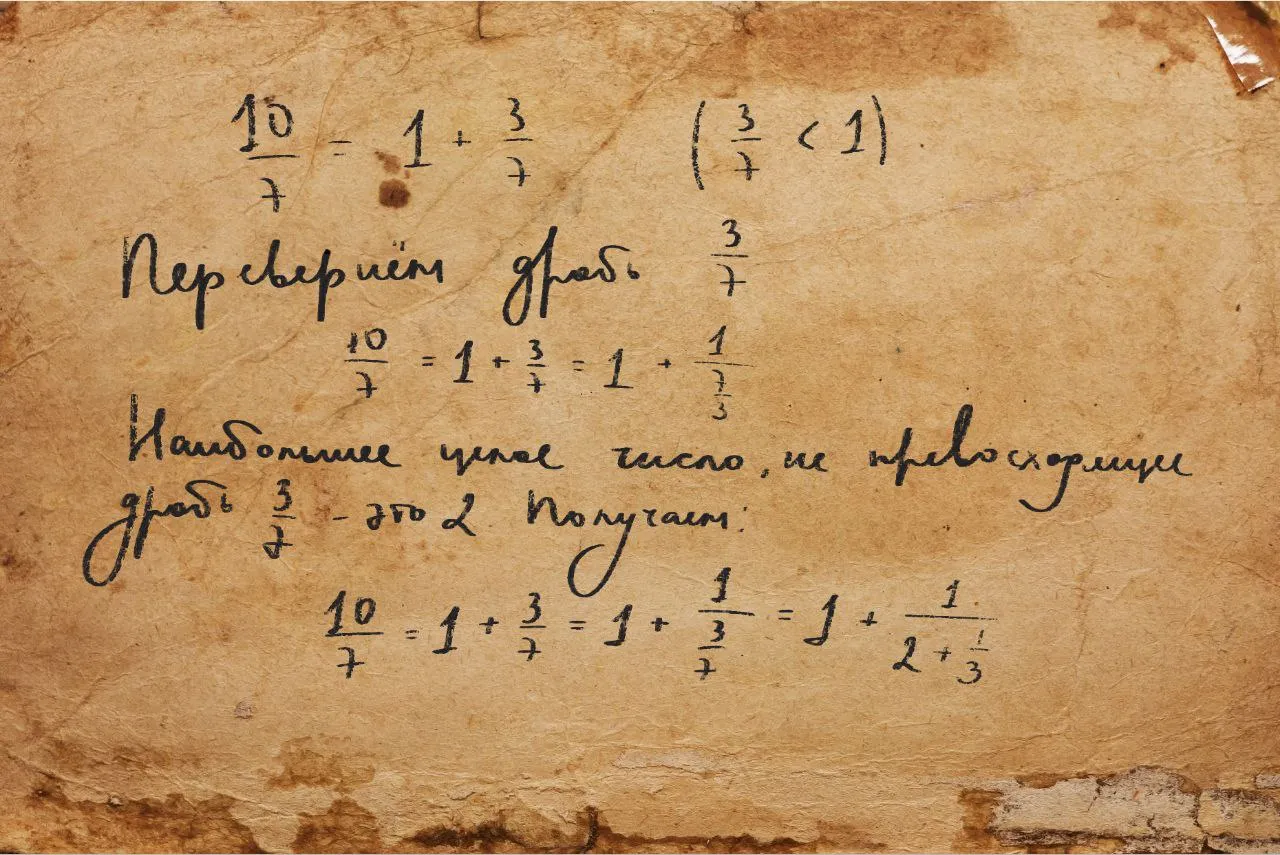 10/7 = 1 + 3/7 (3/7 < 1)
Перевернём дробь 3/7
10/7 = 1 + 3/7 = 1 + 1/(7/3)
Наибольшее целое число, не превосходящее
дробь 3/7 - это 2 Получаем:
10/7 = 1 + 3/7 = 1 + 1/(3/7) = 1 + 1/(2 + 1/3)